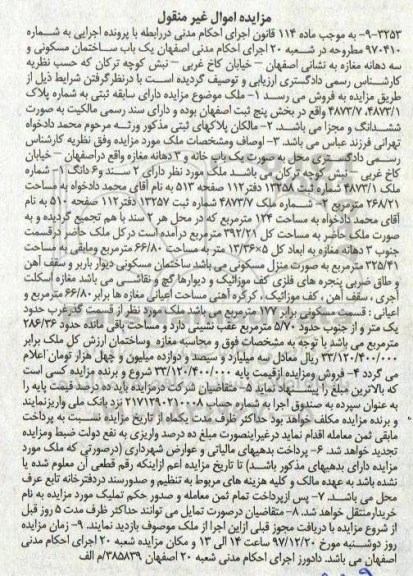 مزایده اموال غیر منقول
۳۲۵۳-۹- به موجب ماده ۱۱۴ قانون اجرای احکام مدنی دررابطه با پرونده اجرایی به شماره
۹۷۰۴۱۰ مطروحه در شعبه ۲۰ اجرای احکام مدنی اصفهان یک باب ساختمان مسکونی و
سه دهانه مغازه به نشانی اصفهان – خیابان کاخ غربی – نبش کوچه ترکان که حسب نظریه
کارشناس رسمی دادگستری ارزیابی و توصیف گردیده است با درنظرگرفتن شرایط ذیل از
طریق مزایده به فروش می رسد ۱- ملک موضوع مزایده دارای سابقه ثبتی به شماره پلاک
۴۸۷۳/۱، ۴۸۷۳/۷ واقع در بخش پنج ثبت اصفهان بوده و دارای سند رسمی مالکیت به صورت
ششدانگ و مجزا می باشد. ۲- مالکان پلاکهای ثبتی مذکور ورثه مرحوم محمد دادخواه
تهرانی فرزند عباس می باشد. ۳- اوصاف ومشخصات ملک مورد مزایده وفق نظریه کارشناس
رسمی دادگستری محل به صورت یک باب خانه و ۳ دهانه مغازه واقع دراصفهان – خیابان
کاخ غربی – نبش کوچه ترکان می باشد ملک مورد نظر دارای ۲ سند و۶ دانگ ۱- شماره
ملک ۴۸۷۳/۱ شماره ثبت ۱۳۲۵۸ دفتر ۱۱۲ صفحه ۵۱۳ به نام آقای محمد دادخواه به مساحت
۲۶۸/۲۱ مترمربع ۲- شماره ملک ۴۸۷۳/۷ شماره ثبت ۱۳۲۵۷ دفتر ۱۱۲ صفحه ۵۱۰ به نام
آقای محمد دادخواه به مساحت ۱۲۴ مترمربع که در محل هر ۲ سند با هم تجمیع گردیده و به
صورت ملک حاضر به مساحت کل ۳۹۲/۲۱ مترمربع درآمده است درکل ملک حاضر درقسمت
جنوب ۳ دهانه مغازه به ابعاد کل ۵×۱۳/۳۶ متر به مساحت ۶۶/۸۰ مترمربع ومابقی به مساحت
۳۲۵/۴۱ مترمربع به صورت منزل مسکونی می باشد ساختمان مسکونی دیوار باربر و سقف آهن
و طاق ضربی پنجره های فلزی کف موزائیک و دیوارها گچ و نقاشی می باشد مغازه اسکلت
آجری ، سقف آهن ، کف موزائیک ، کرکره آهنی مساحت اعیانی مغازه ها برابر ۶۶/۸۰ مترمربع و
اعیانی : قسمت مسکونی برابر ۱۷۰ مترمربع می باشد ملک مورد نظر از قسمت گذرغرب حدود
یک متر و از جنوب حدود ۵/۷۰ مترمربع عقب نشینی دارد و مساحت باقی مانده حدود ۲۸۶/۳۶
مترمربع می باشد با توجه به مشخصات فوق و محاسبه مغازه وساختمان ارزش کل ملک برابر
۳۳/۱۲۰/۴۰۰/۰۰۰ ریال معادل سه میلیارد و سیصد و دوازده میلیون و چهل هزار تومان اعلام
می گردد ۴- فروش ومزایده ازقیمت پایه ۳۳/۱۲۰/۴۰۰/۰۰۰ شروع و برنده مزایده کسی است
که بالاترین مبلغ را پیشنهاد نماید ۵- متقاضیان شرکت درمزایده باید ده درصد قیمت پایه را
به عنوان سپرده به صندوق اجرا به شماره حساب ۲۱۷۱۲۹۰۲۱۰۰۰۸ نزد بانک ملی واریزنمایند
و برنده مزایده مکلف خواهد بود حداکثر ظرف مدت یکماه از تاریخ مزایده نسبت به پرداخت
مابقی ثمن معامله اقدام نماید درغیراینصورت مبلغ ده درصد واریزی به نفع دولت ضبط ومزایده
تجدید خواهد شد. ۶- پرداخت بدهیهای مالیاتی و عوارض شهرداری (درصورتی که ملک مورد
مزایده دارای بدهیهای مذکور باشد) تا تاریخ مزایده اعم ازاینکه رقم قطعی آن معلوم شده یا
نشده باشد به عهده مالک و کلیه هزینه های مربوط به تنظیم و صدورسند دردفترخانه تابع عرف
محل می باشد. ۷- پس ازپرداخت تمام ثمن معامله و صدور حکم تملیک مورد مزایده به نام
خریدارمنتقل خواهد شد. ۸- متقاضیان درصورت تمایل می توانند حداکثر ظرف مدت ۵ روز قبل
از شروع مزایده با دریافت مجوز قبلی ازاین اجرا از ملک موصوف بازدید نمایند. ۹- زمان مزایده
روز دوشنبه مورخ ۹۷/۱۲/۲۰ ساعت ۱۴ الی ۱۳ و مکان مزایده شعبه ۲۰ اجرای احکام مدنی
اصفهان می باشد. دادورز اجرای احکام مدنی شعبه ۲۰ اصفهان ۳۸۵۸۳۹/م الف